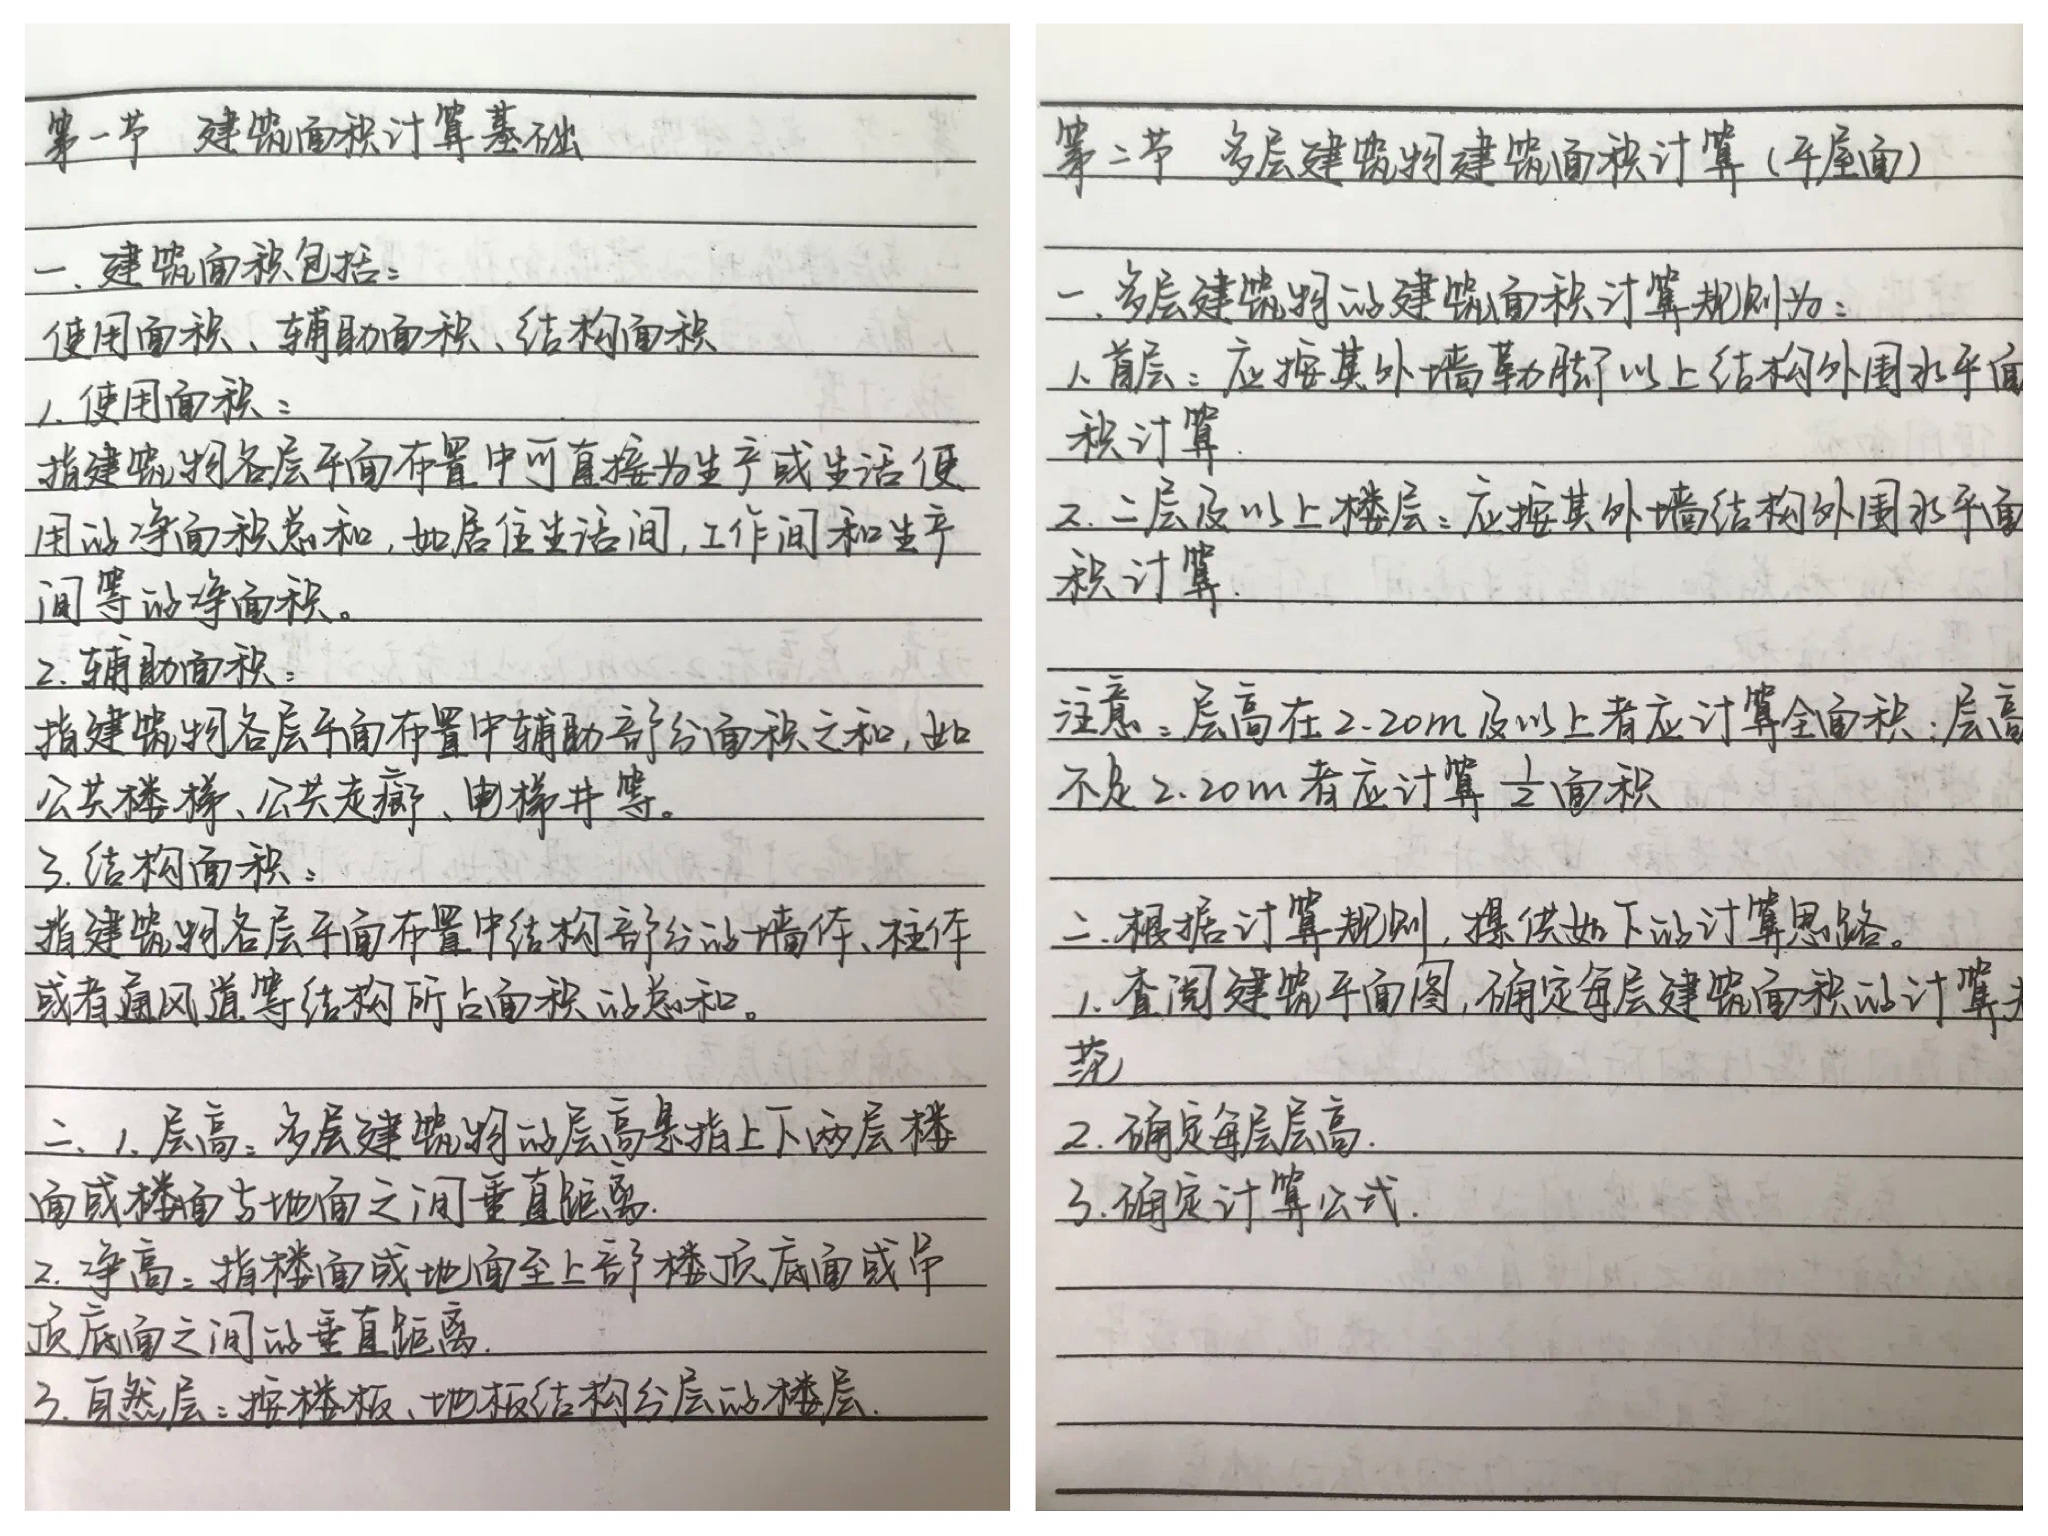 第一节 建筑面积计算基础
一、建筑面积包括：
使用面积、辅助面积、结构面积
1、使用面积：
指建筑物各层平面布置中可直接为生产或生活使
用的净面积总和，如居住生活间，工作间和生产
间等的净面积。
2.辅助面积：
指建筑物各层平面布置中辅助部分面积之和，如
公共楼梯、公共走廊、电梯井等。
3.结构面积：
指建筑物各层平面布置中结构部分的墙体、柱体
或者通风道等结构所占面积的总和。
二、1.层高：多层建筑物的层高是指上下两层楼
面或楼面与地面之间垂直距离.
2.净高：指楼面或地面至上部楼顶底面或吊
顶底面之间的垂直距离.
3.自然层：按楼板、地板结构分层的楼层.
第二节 多层建筑物建筑面积计算（平屋面）
一、多层建筑物的建筑面积计算规则为：
1、首层：应按其外墙勒脚以上结构外围水平面
积计算.
2.二层及以上楼层：应按其外墙结构外围水平面
积计算.
注意：层高在2.20m及以上者应计算全面积；层高
不足2.20m者应计算1/2面积
二、根据计算规则，提供如下的计算思路。
1、查阅建筑平面图，确定每层建筑面积的计算
范
2.确定每层层高.
3.确定计算公式.